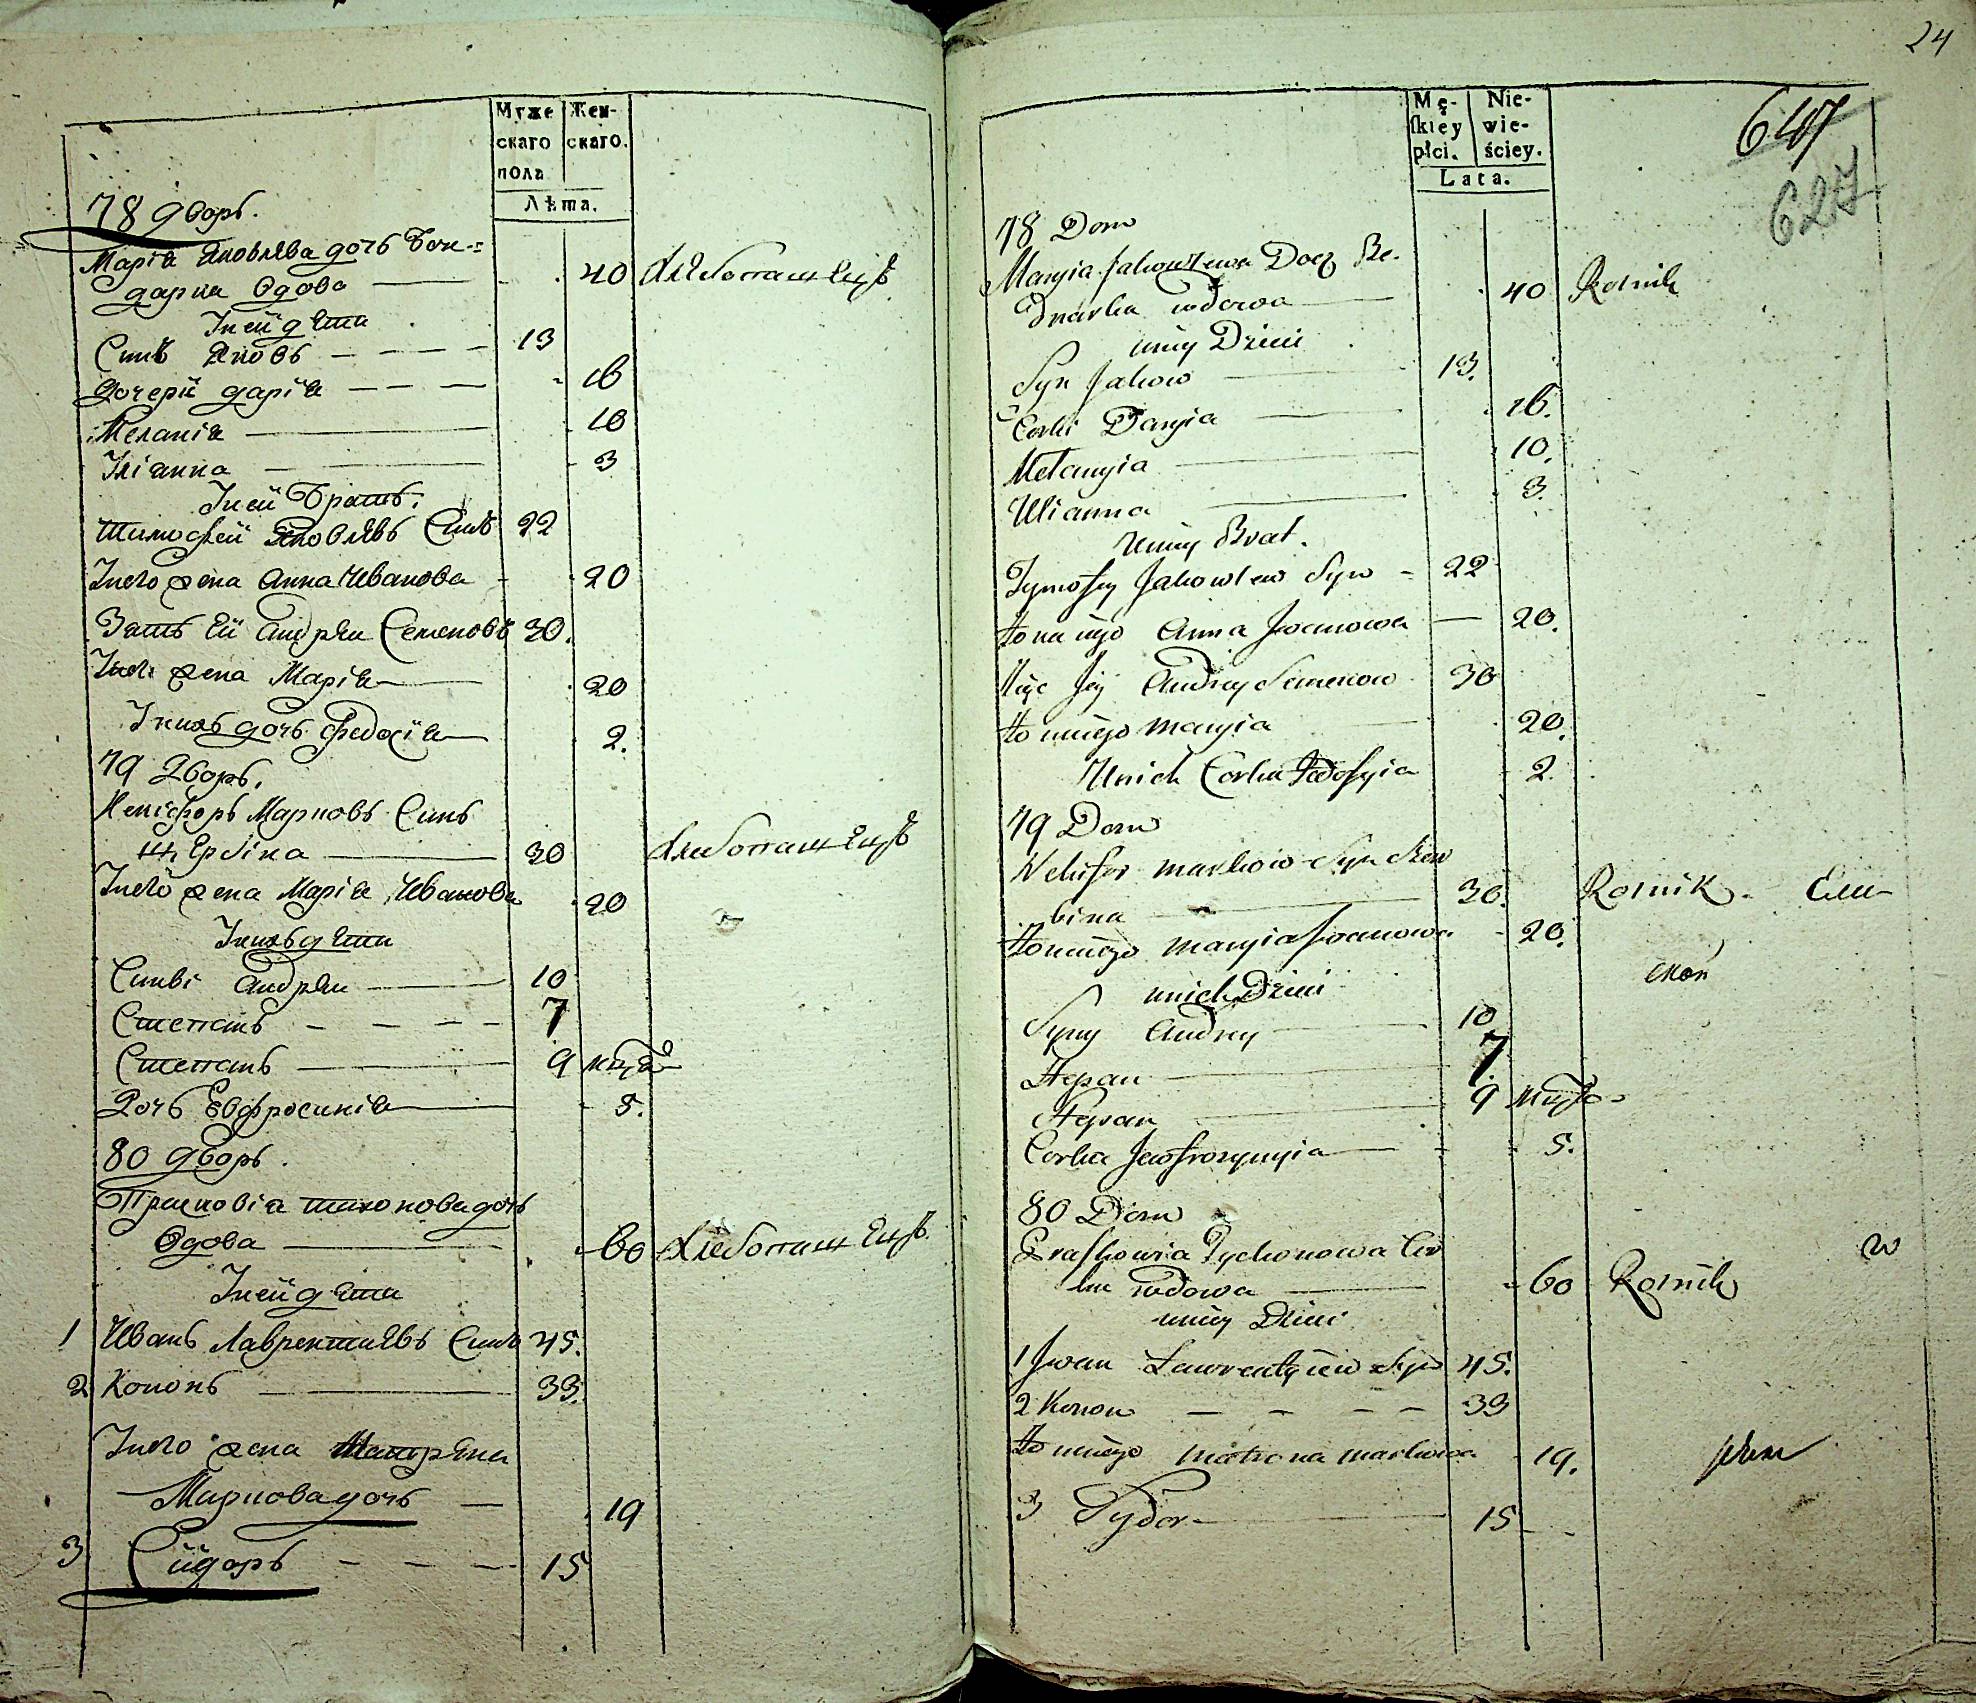 Муже
скаго
пола
Жен-
скаго.
Лѣта.
78 дворъ.
Марія Яковлѣва дочь Бон-
дарка Вдова 40 Хлебопашецъ
Унеи дети
Синъ Яковъ 13
Дочери дария 16
Меланія 10
Улianна 3
Унеи Братъ.
Тимофей Яковлѣвъ Синъ 22
Унего жена Анна Иванова 20
Зать Еи Андрей Семеновъ 30.
Унего жена Марія 20
Унихъ дочь Федосія 2.
79 Дворъ.
Некіфоръ Марковъ Синъ
Щербіна 30 Хлебопашецъ
Унего жена Марія Иванова 20
Унихъ дети
Синві Андрей 10
Степанъ 7
Степанъ 9 мцей
Дочь Евфросинія 5.
80 дворъ.
Прасковія тихонова дочь
Вдова 60 Хлебопашецъ
Унеи дети
1 Иванъ Лаврентиевъ Синъ 45.
2 Кононъ 33.
Унего жена Матрена
Маркова дочь 19
3 Сидоръ 15
24
647
627
Mę-
skiey
płci.
Nie-
wie-
ściey.
Lata.
78 Dom
Maryia Jakowlewa Docz Bo-
dnarka wdowa 40 Rolnik
uniey Dzieci
Syn Jakow 13.
Corki Daryia 16.
Melanyia 10.
Ulianna 3.
Uniey Brat.
Tymofey Jakowlew Syn 22
Żona iego Anna Iwanowa 20.
Zięc Jey Andrey Semenow 30
Żo niego Maryia 20.
Unich Corka Fedosyia 2.
79 Dom
Nekifor Markow Syn Szer
bina 30. Rolnik
Żo niego Maryia Iwanowa 20.
unich Dzieci
Syny Andrey 10
Stepan 7.
Stepan 9
Corka Jewfrozynyia 5.
80 Dom
Praskowia Tychonowa Cor
ka wdowa 60 Rolnik
uniey Dzieci
1 Iwan Lawrentyiew Syn 45.
2 Konon 33
Żo niego Matrona Markowa 19.
3 Sydor 15